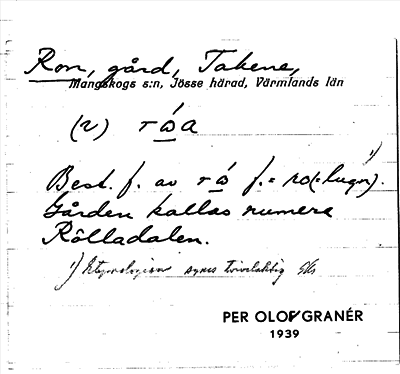 Ron, gård, Takene,
Mangskogs s:n, Jösse härad, Värmlands län
(2) rώa
1)
Best. f. av rώ f. = ro (= lugn).
Gården kallas numera
Rölladalen.
1) Etymologien synes tvivelaktig
PER OLOF GRANÉR
1939